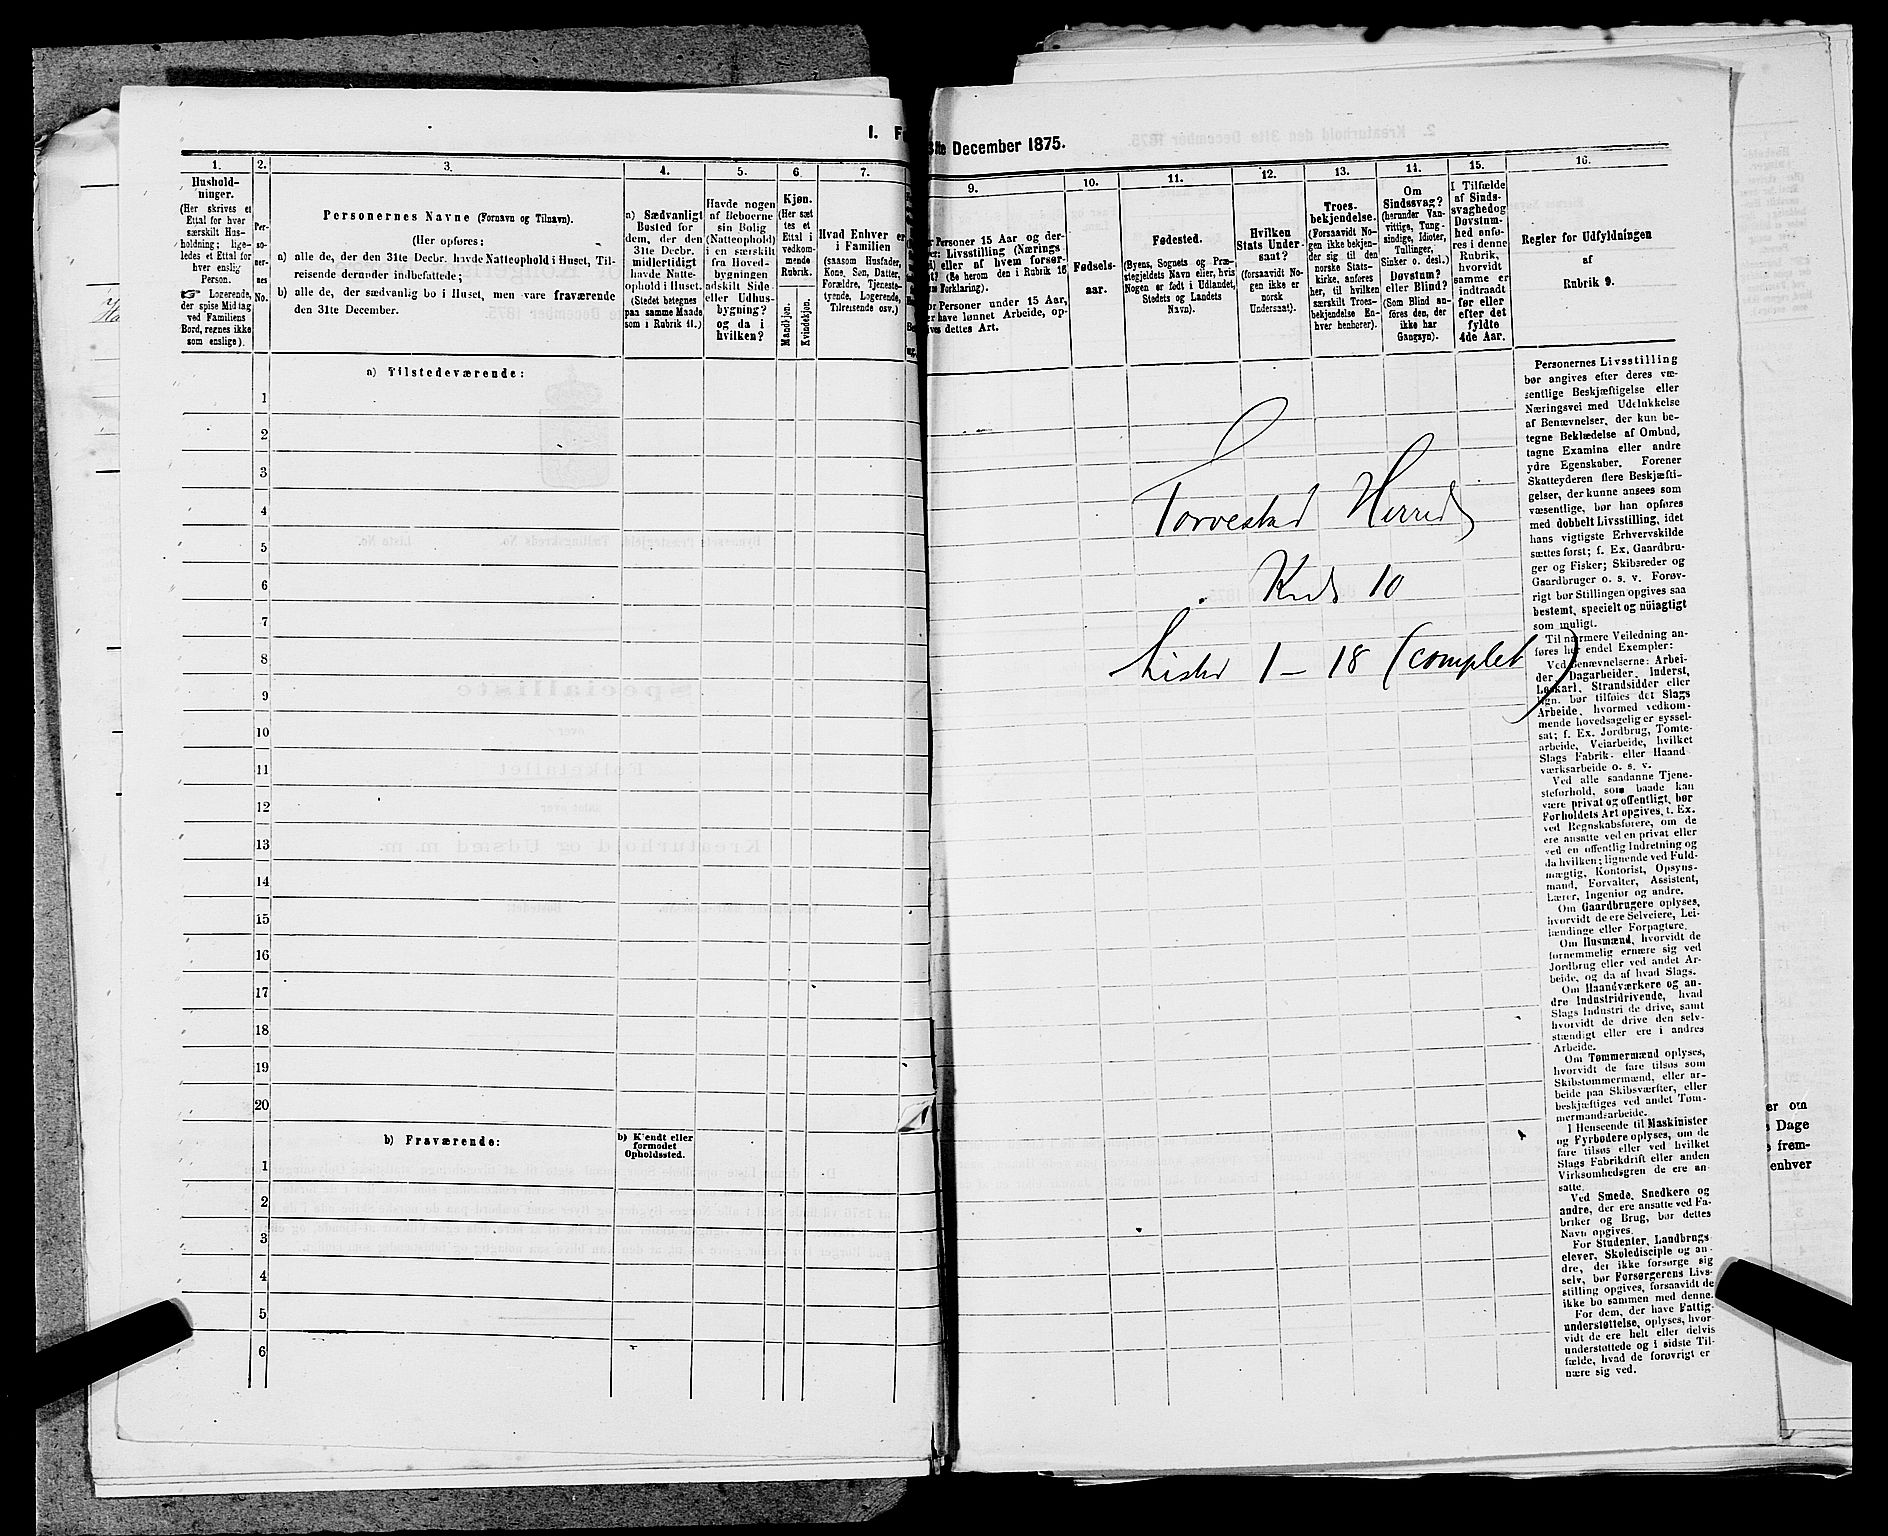 I. F
31te December 1875.
1.
2.
3.
4.
5.
6.
7.
9.
10.
11.
12.
13.
14.
15.
16.
Hushold-
ninger.
(Her skrives et
Ettal for hver
særskilt Hus-
holdning; lige-
ledes et Ettal for
hver enslig
Person.
☞ Logerende,
der spise Middag
ved Familiens
Bord, regnes ikke
som enslige).
Per-
so-
ner-
nes
No.
Personernes Navne (Fornavn og Tilnavn).
(Her opføres:
a) alle de, der den 31te Decbr. havde Natteophold i Huset, Til-
reisende derunder indbefattede;
b) alle de, der sædvanlig bo i Huset, men vare fraværende
den 31te December.
a) Sædvanligt
Bosted for
dem, der den
31te Decbr.
midlertidigt
havde Natte-
ophold i Huset.
(Stedet betegnes
paa samme Maade
som i Rubrik 11.)
Havde nogen
af Beboerne
sin Bolig
(Natteophold)
i en særskilt
fra Hoved-
bygningen
adskilt Side-
eller Udhus-
bygning?
og da i
hvilken?
Kjøn.
(Her sæt
tes et
Ettal i
vedkom-
mende
Rubrik.
Mandkjøn.
Kvindekjøn.
Hvad Enhver er
i Familien
(saasom Husfader,
Kone, Søn, Datter,
Forældre, Tjeneste-
tyende, Logerende,
Tilreisende osv.)
r Personer 15 Aar og der-
er: Livsstilling (Nærings
i) eller af hvem forsør-
t? (Se herom den i Rubrik 16
m Forklaring).
or Personer under 15 Aar,
er have lønnet Arbeide, op-
ives dettes Art.
Fødsels-
aar.
Fødested.
(Byens, Sognets og Præ-
stegjeldets Navn eller, hvis
Nogen er født i Udlandet,
Stedets og Landets
Navn).
Hvilken
Stats Under-
saat?
(forsaavidt No-
gen ikke er
norsk
Undersaat).
Troes-
bekjendelse.
(Forsaavidt No-
gen ikke bekjen-
der sig til den
norske Stats-
kirke, anføres
her, til hvilken
særskilt Troes-
bekjendelse En-
hver henhører).
Om
Sindssvag?
(herunder Van-
vittige, Tung-
sindige, Idioter,
Tullinger,
Sinker o. desl.)
Døvstum?
eller Blind?
(Som Blind an-
føres den, der
ikke har
Gangsyn).
I Tilfælde
af Sinds-
svaghed og
Døvstum-
hed anfø-
res i denne
Rubrik,
hvorvidt
samme er
indtraadt
før eller
efter det
fyldte
4de Aar.
Regler for Udfyldningen
af
Rubrik 9.
a) Tilstedeværende:
1
2
3
4
5
6
7
8
9
10
11
12
13
14
15
16
17
18
19
20
b) Fraværende:
b) Kjendt eller
formodet
Opholdssted.
1
2
3
4
5
6
Torvestad Herred
Kreds 10
Lister 1 – 18 (complet)
Personernes Livsstilling
bør angives efter deres væ-
sentlige Beskjæftigelse eller
Næringsvei med Udelukkelse
af Benævnelser, der kun be-
tegne Beklædelse af Ombud,
tagne Examina eller andre
ydre Egenskaber. Forener
Skatteyderen flere Beskjæfti-
gelser, der kunne ansees som
væsentlige, bør han opføres
med dobbelt Livsstilling, idet
hans vigtigste Erhvervskilde
sættes først; f. Ex. Gaardbru-
ger og Fisker; Skibsreder og
Gaardbruger o. s. v. Forøv-
rigt bør Stillingen opgives saa
bestemt, specielt og nøiagtigt
som muligt.
Til nærmere Veiledning an-
føres her endel Exempler:
Ved Benævnelserne: Arbei-
der, Dagarbeider, Inderst,
Løskarl, Strandsidder eller
lign. bør tilføies det Slags
Arbeide, hvormed vedkom-
mende hovedsagelig er syssel-
sat; f. Ex. Jordbrug, Tomte-
arbeide, Veiarbeide, hvilket
Slags Fabrik- eller Haand
værksarbeide o. s. v.
Ved alle saadanne Tjene-
steforhold, som baade kan
være privat og offentligt, bør
Forholdets Art opgives, t. Ex.
ved Regnskabsførere, om de
ere ansatte ved en privat eller
ved en offentlig Indretning og
da hvilken; lignende ved Fuld-
mægtig, Kontorist, Opsyns-
mand, Forvalter, Assistent,
Lærer, Ingeniør og andre.
Om Gaardbrugere oplyses,
hvorvidt de ere Selveiere, Lei-
lændinge eller Forpagtere.
Om Husmænd, hvorvidt de
fornemmelig ernære sig ved
Jordbrug eller ved andet Ar-
beide, og da af hvad Slags.
Om Haandværkere og an-
dre Industridrivende, hvad
Slags Industri de drive, samt
hvorvidt de drive den selv-
stændigt eller ere i andres
Arbeide.
Om Tømmermænd oplyses,
hvorvidt de fare tilsøs som
Skibstømmermænd, eller ar-
beide paa Skibsværfter, eller
beskjæftiges ved andet Tøm-
mermandsarbeide.
I Henseende til Maskinister
og Fyrbødere oplyses, om de
fare tilsøs eller ved hvilket
Slags Fabrikdrift eller anden
Virksomhedsgren de ere an-
satte.
Ved Smede, Snedkere og
andre, der ere ansatte ved Fa-
briker og Brug, bør dettes
Navn opgives.
For Studenter, Landbrugs
elever, Skoledisciple og an-
dre, der ikke forsørge sig
selv, bør Forsørgerens Livs-
stilling opgives, forsaavidt de
ikke bo sammen med denne.
For dem, der have Fattig-
understøttelse, oplyses, hvor-
vidt de ere helt eller delvis
understøttede og i sidste Til-
fælde, hvad de forøvrigt er
nære sig ved.
er om
Dage
frem-
enhver